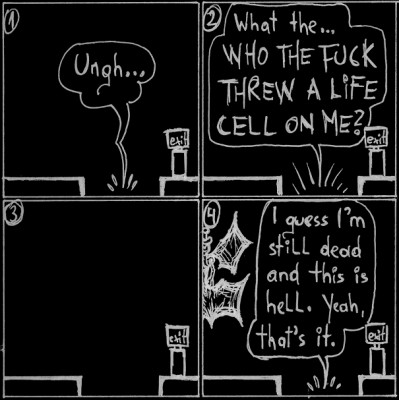 1
Ungh...
exit
2
What the...
WHO THE FUCK
THREW A LIFE
CELL ON ME?
exit
3
exit
4
I guess I'm
still dead
and this is
hell. Yeah,
that's it.
exit